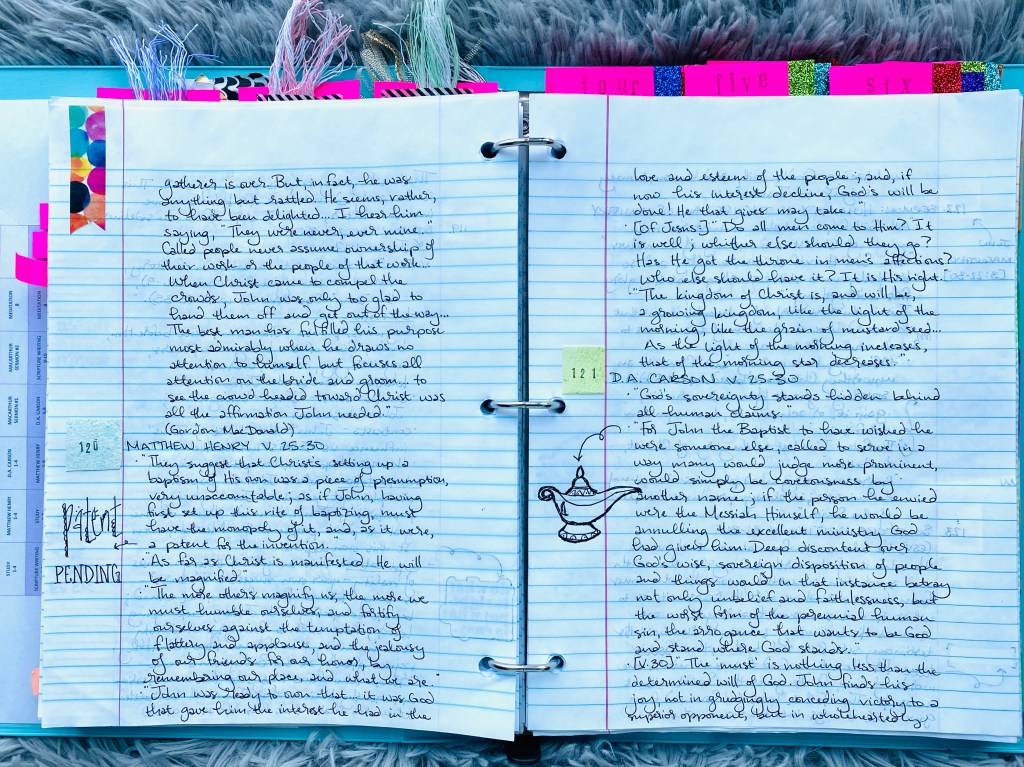 four
five
six
gatherer is over. But, in fact, he was
anything but rattled. He seems, rather,
to have been delighted... I hear him
saying, "They were never, ever mine."
Called people never assume ownership of
their work or the people of that work...
When Christ came to compel the
crowds, John was only too glad to
hand them off and get out of the way...
The best man has fulfilled his purpose
most admirably when he draws no
attention to himself but focuses all
attention on the bride and groom... to
see the crowd headed toward Christ was
all the affirmation John needed."
(Gordon MacDonald)
120
MATTHEW HENRY V. 25-30
· "They suggest that Christ's setting up a
baptism of His own was a piece of presumption,
very unaccountable; as if John, having
first set up this rite of baptizing, must
have the monopoly of it, and, as it were,
a patent for the invention."
patent
PENDING
· "As far as Christ is manifested. He will
be magnified."
· "The more others magnify us, the more we
must humble ourselves, and fortify
ourselves against the temptation of
flattery and applause, and the jealousy
of our friends for our honor, by
remembering our place, and what we are."
· "John was ready to own that... it was God
that gave him the interest he had in the
love and esteem of the people; and, if
now his interest decline, God's will be
done! He that gives may take."
· [Of Jesus:] "Do all men come to Him? It
is well; whither else should they go?
Has He got the throne in men's affections?
Who else should have it? It is His right."
· "The kingdom of Christ is, and will be,
a growing kingdom, like the light of the
morning, like the grain of mustard seed...
As the light of the morning increases,
that of the morning star decreases."
121
D.A. CARSON V. 25-30
· "God's sovereignty stands hidden behind
all human claims."
· "For John the Baptist to have wished he
were someone else, called to serve in a
way many would judge more prominent,
would simply be covetousness by
another name; if the person he envied
were the Messiah Himself, he would be
annulling the excellent ministry God
had given him. Deep discontent over
God's wise, sovereign disposition of people
and things would in that instance betray
not only unbelief and faithlessness, but
the worst form of the perennial human
sin, the arrogance that wants to be God
and stand where God stands."
· [V. 30] "The 'must' is nothing less than the
determined will of God. John finds his
joy, not in grudgingly conceding victory to a
superior opponent, but in wholeheartedly
MEDITATION
MACARTHUR
SERMON #2
SCRIPTURE WRITING
MACARTHUR
SERMON #1
D.A. CARSON
D.A. CARSON
1-4
MATTHEW HENRY
MATTHEW HENRY
1-4
STUDY
STUDY
1-4
SCRIPTURE WRITING